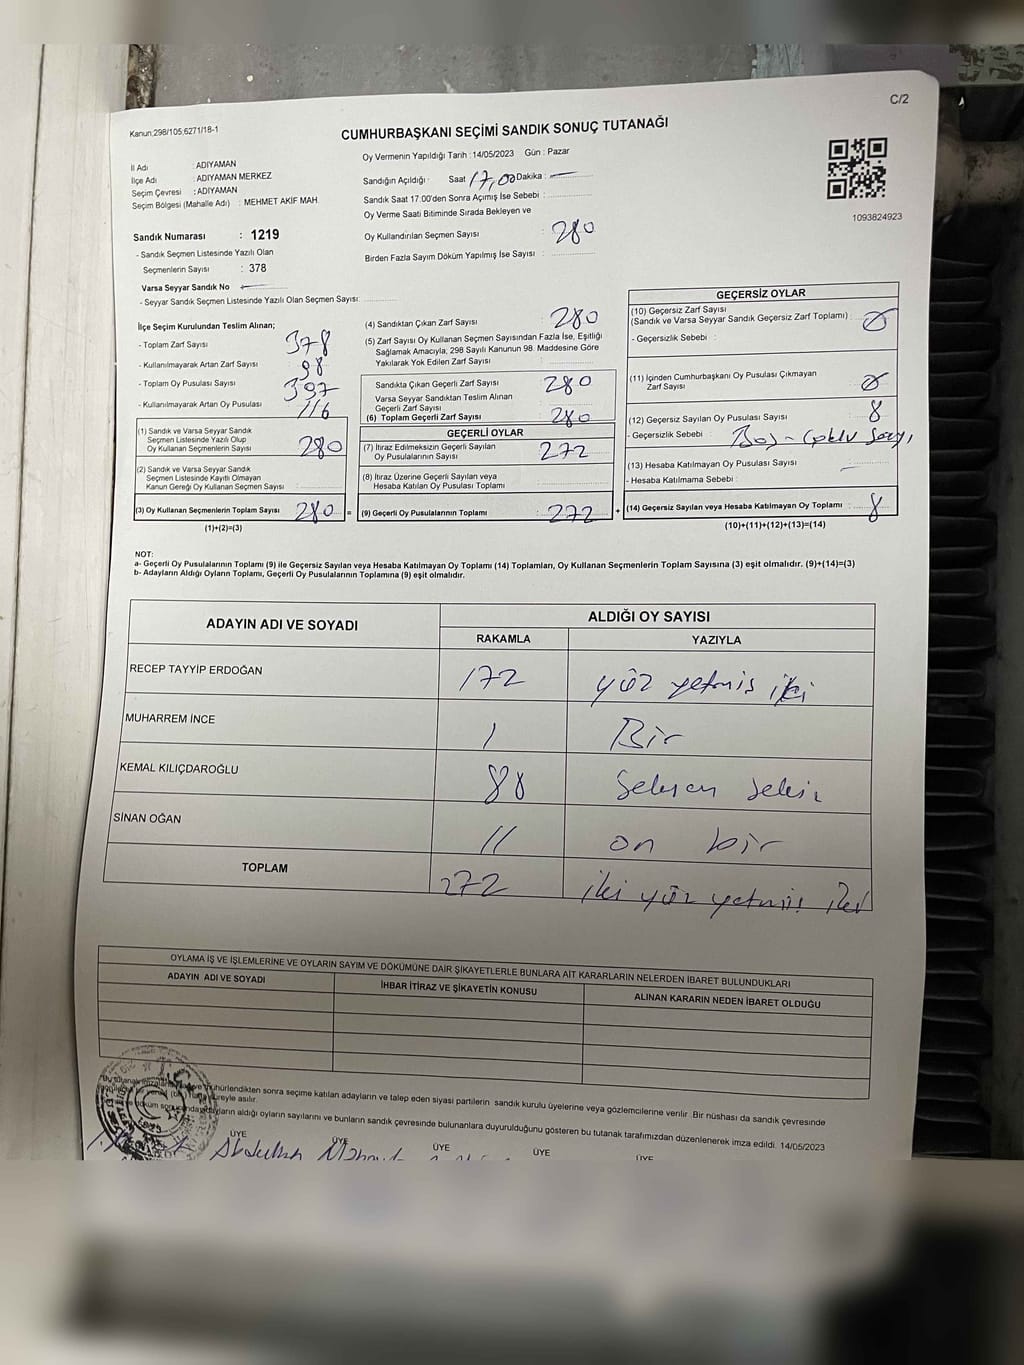 C/2
Kanun:298/105;6271/18-1
CUMHURBAŞKANI SEÇİMİ SANDIK SONUÇ TUTANAĞI
İl Adı : ADIYAMAN
İlçe Adı : ADIYAMAN MERKEZ
Seçim Çevresi : ADIYAMAN
Seçim Bölgesi (Mahalle Adı) : MEHMET AKİF MAH.
Oy Vermenin Yapıldığı Tarih : 14/05/2023 Gün : Pazar
Sandığın Açıldığı Saat 17,00 Dakika : —
Sandık Saat 17.00'den Sonra Açımış İse Sebebi :
Oy Verme Saati Bitiminde Sırada Bekleyen ve
Oy Kullandırılan Seçmen Sayısı : 280
Birden Fazla Sayım Döküm Yapılmış İse Sayısı :
1093824923
Sandık Numarası : 1219
- Sandık Seçmen Listesinde Yazılı Olan
Seçmenlerin Sayısı : 378
Varsa Seyyar Sandık No —
- Seyyar Sandık Seçmen Listesinde Yazılı Olan Seçmen Sayısı:
İlçe Seçim Kurulundan Teslim Alınan;
- Toplam Zarf Sayısı 378
- Kullanılmayarak Artan Zarf Sayısı 98
- Toplam Oy Pusulası Sayısı 397
- Kullanılmayarak Artan Oy Pusulası 116
(1) Sandık ve Varsa Seyyar Sandık
Seçmen Listesinde Yazılı Olup
Oy Kullanan Seçmenlerin Sayısı 280
(2) Sandık ve Varsa Seyyar Sandık
Seçmen Listesinde Kayıtlı Olmayan
Kanun Gereği Oy Kullanan Seçmen Sayısı
(3) Oy Kullanan Seçmenlerin Toplam Sayısı 280 =
(1)+(2)=(3)
(4) Sandıktan Çıkan Zarf Sayısı 280
(5) Zarf Sayısı Oy Kullanan Seçmen Sayısından Fazla İse, Eşitliği
Sağlamak Amacıyla, 298 Sayılı Kanunun 98. Maddesine Göre
Yakılarak Yok Edilen Zarf Sayısı
Sandıkta Çıkan Geçerli Zarf Sayısı 280
Varsa Seyyar Sandıktan Teslim Alınan
Geçerli Zarf Sayısı
(6) Toplam Geçerli Zarf Sayısı 280
GEÇERLİ OYLAR
(7) İtiraz Edilmeksizin Geçerli Sayılan
Oy Pusulalarının Sayısı 272
(8) İtiraz Üzerine Geçerli Sayılan veya
Hesaba Katılan Oy Pusulası Toplamı
(9) Geçerli Oy Pusulalarının Toplamı 272 +
GEÇERSİZ OYLAR
(10) Geçersiz Zarf Sayısı
(Sandık ve Varsa Seyyar Sandık Geçersiz Zarf Toplamı) : Ø
- Geçersizlik Sebebi :
(11) İçinden Cumhurbaşkanı Oy Pusulası Çıkmayan
Zarf Sayısı Ø
(12) Geçersiz Sayılan Oy Pusulası Sayısı 8
- Geçersizlik Sebebi : Boş - Çoklu
(13) Hesaba Katılmayan Oy Pusulası Sayısı —
- Hesaba Katılmama Sebebi :
(14) Geçersiz Sayılan veya Hesaba Katılmayan Oy Toplamı : 8
(10)+(11)+(12)+(13)=(14)
NOT:
a- Geçerli Oy Pusulalarının Toplamı (9) ile Geçersiz Sayılan veya Hesaba Katılmayan Oy Toplamı (14) Toplamları, Oy Kullanan Seçmenlerin Toplam Sayısına (3) eşit olmalıdır. (9)+(14)=(3)
b- Adayların Aldığı Oyların Toplamı, Geçerli Oy Pusulalarının Toplamına (9) eşit olmalıdır.
ADAYIN ADI VE SOYADI
ALDIĞI OY SAYISI
RAKAMLA YAZIYLA
RECEP TAYYİP ERDOĞAN 172 yüz yetmiş iki
MUHARREM İNCE 1 Bir
KEMAL KILIÇDAROĞLU 88 Seksen sekiz
SİNAN OĞAN 11 on bir
TOPLAM 272 iki yüz yetmiş iki
OYLAMA İŞ VE İŞLEMLERİNE VE OYLARIN SAYIM VE DÖKÜMÜNE DAİR ŞİKAYETLERLE BUNLARA AİT KARARLARIN NELERDEN İBARET BULUNDUKLARI
ADAYIN ADI VE SOYADI İHBAR İTİRAZ VE ŞİKAYETİN KONUSU ALINAN KARARIN NEDEN İBARET OLDUĞU
mühürlendikten sonra seçime katılan adayların ve talep eden siyasi partilerin sandık kurulu üyelerine veya gözlemcilerine verilir. Bir nüshası da sandık çevresinde
süreyle asılır.
adayların aldığı oyların sayılarını ve bunların sandık çevresinde bulunanlara duyurulduğunu gösteren bu tutanak tarafımızdan düzenlenerek imza edildi. 14/05/2023
ÜYE ÜYE ÜYE ÜYE ÜYE
Abdullah